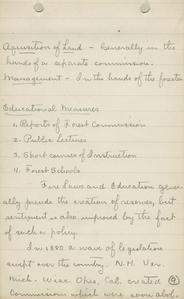 Aquisition of Land - Generally in the
hands of a separate commission.
Management - In the hands of the forester
Educational Measures
1. Reports of Forest Commission
2. Public Lectures
3. Short courses of Instruction
4. Forest Schools
Fire Laws and Education gener-
ally precede the creation of reserves, but
sentiment is also improved by the fact
of such a policy.
In 1880 a wave of legislation
swept over the country. N.H. Ver.
Mich. Wisc. Ohio, Cal. created
Commissions which were soon abol-
9